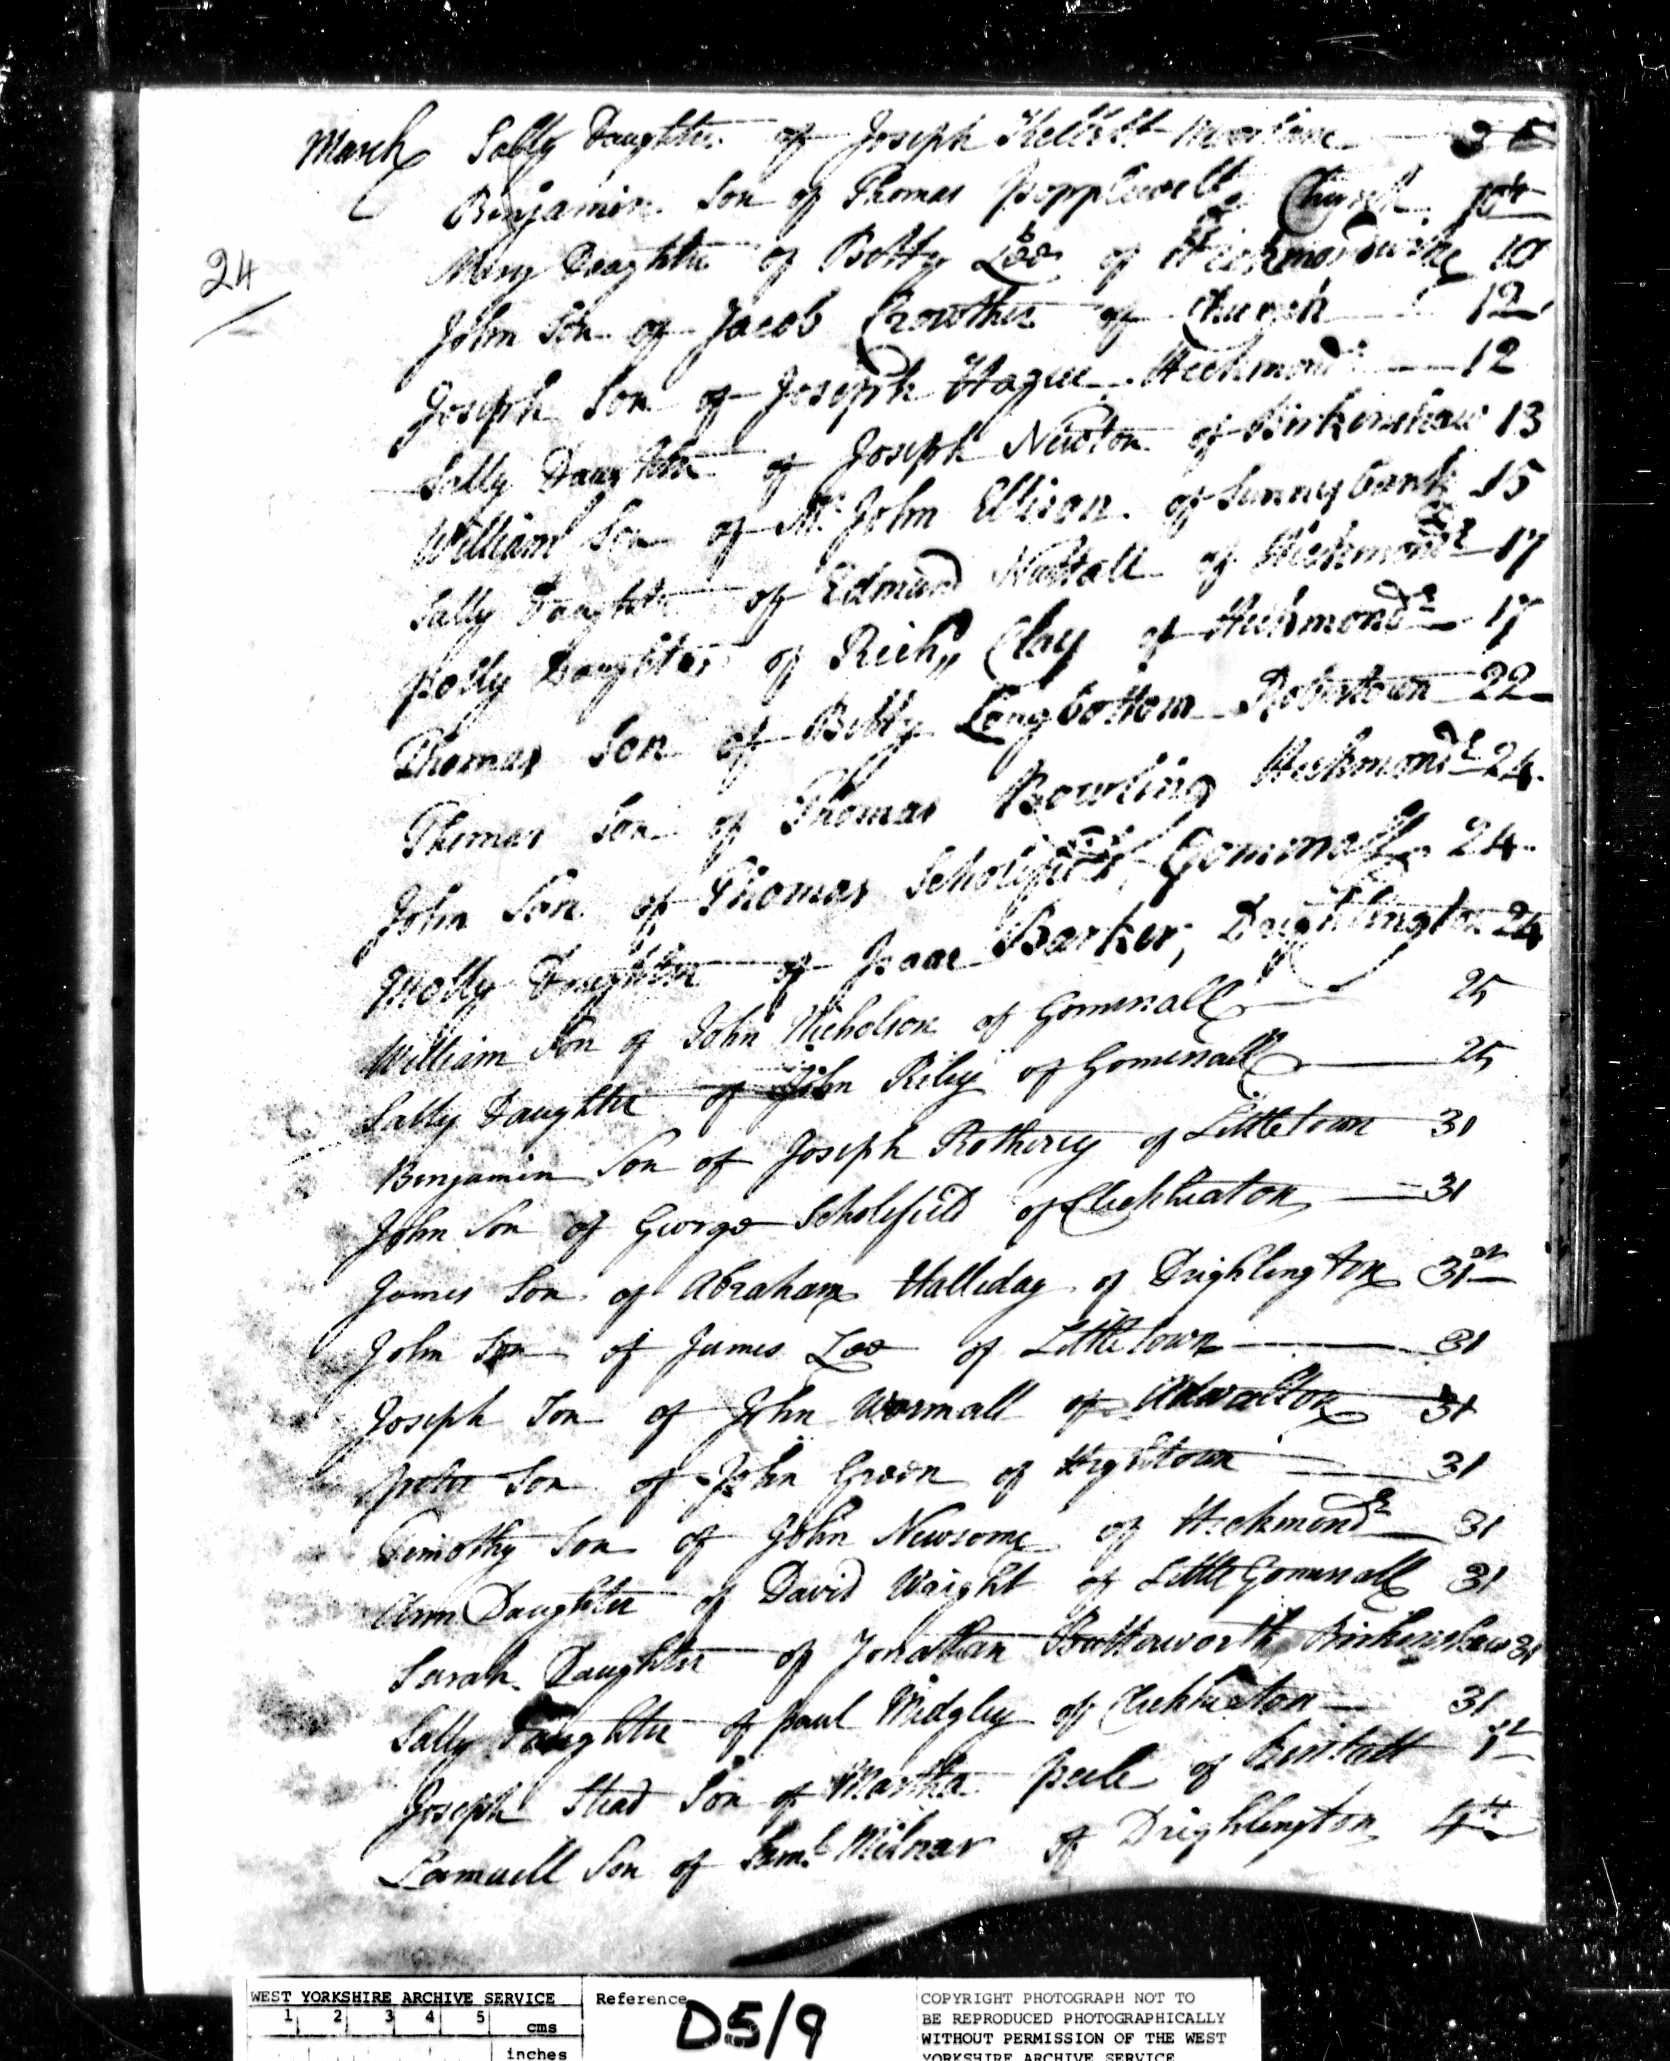 March Sally Daughter of Joseph Kellett Moorlane
Benjamin Son of Thomas Popplewell Church 10th
24
Mary Daughter of Betty Lee of Heckmondwike 10
John Son of Jacob Crowther of Church 12
Joseph Son of Joseph Hague Heckmond 12
Sally Daughter of Joseph Newton of Birkenshaw 13
William Son of Mr John Ellison of Sunnybank 15
Sally Daughter of Edmund Nuttall of Heckmondke 17
Polly Daughter of Richd Clay of Heckmondke 17
Thomas Son of Betty Longbottom Robertown 22
Thomas Son of Thomas Bowling Heckmondke 24
John Son of Thomas Scholefield, Gommall 24
Molly Daughter of Isaac Barker, Drighlington 24
William Son of John Nicholson of Gomersall 25
Sally Daughter of John Riley of Gomersall 25
Benjamin Son of Joseph Rotherey of Littletown 31
John Son of George Scholefield of Cleckheaton 31
James Son of Abraham Halliday of Drighlington 31st
John Son of James Lee of Littletown 31
Joseph Son of John Wormall of Adwalton 31
Peter Son of John Green of Hightown 31
Timothy Son of John Newsome of Heckmondke 31
Ann Daughter of David Wright of Little Gomersall 31
Sarah Daughter of Jonathan Butterworth Birkenshaw 31
Sally Daughter of Paul Midgley of Cleckheaton 31
Joseph Stead Son of Martha Peele of Birstall 1st
Samuell Son of Saml Milner of Drighlington 4th
WEST YORKSHIRE ARCHIVE SERVICE
1 2 3 4 5
cms
inches
Reference
D5/9
COPYRIGHT PHOTOGRAPH NOT TO
BE REPRODUCED PHOTOGRAPHICALLY
WITHOUT PERMISSION OF THE WEST
YORKSHIRE ARCHIVE SERVICE